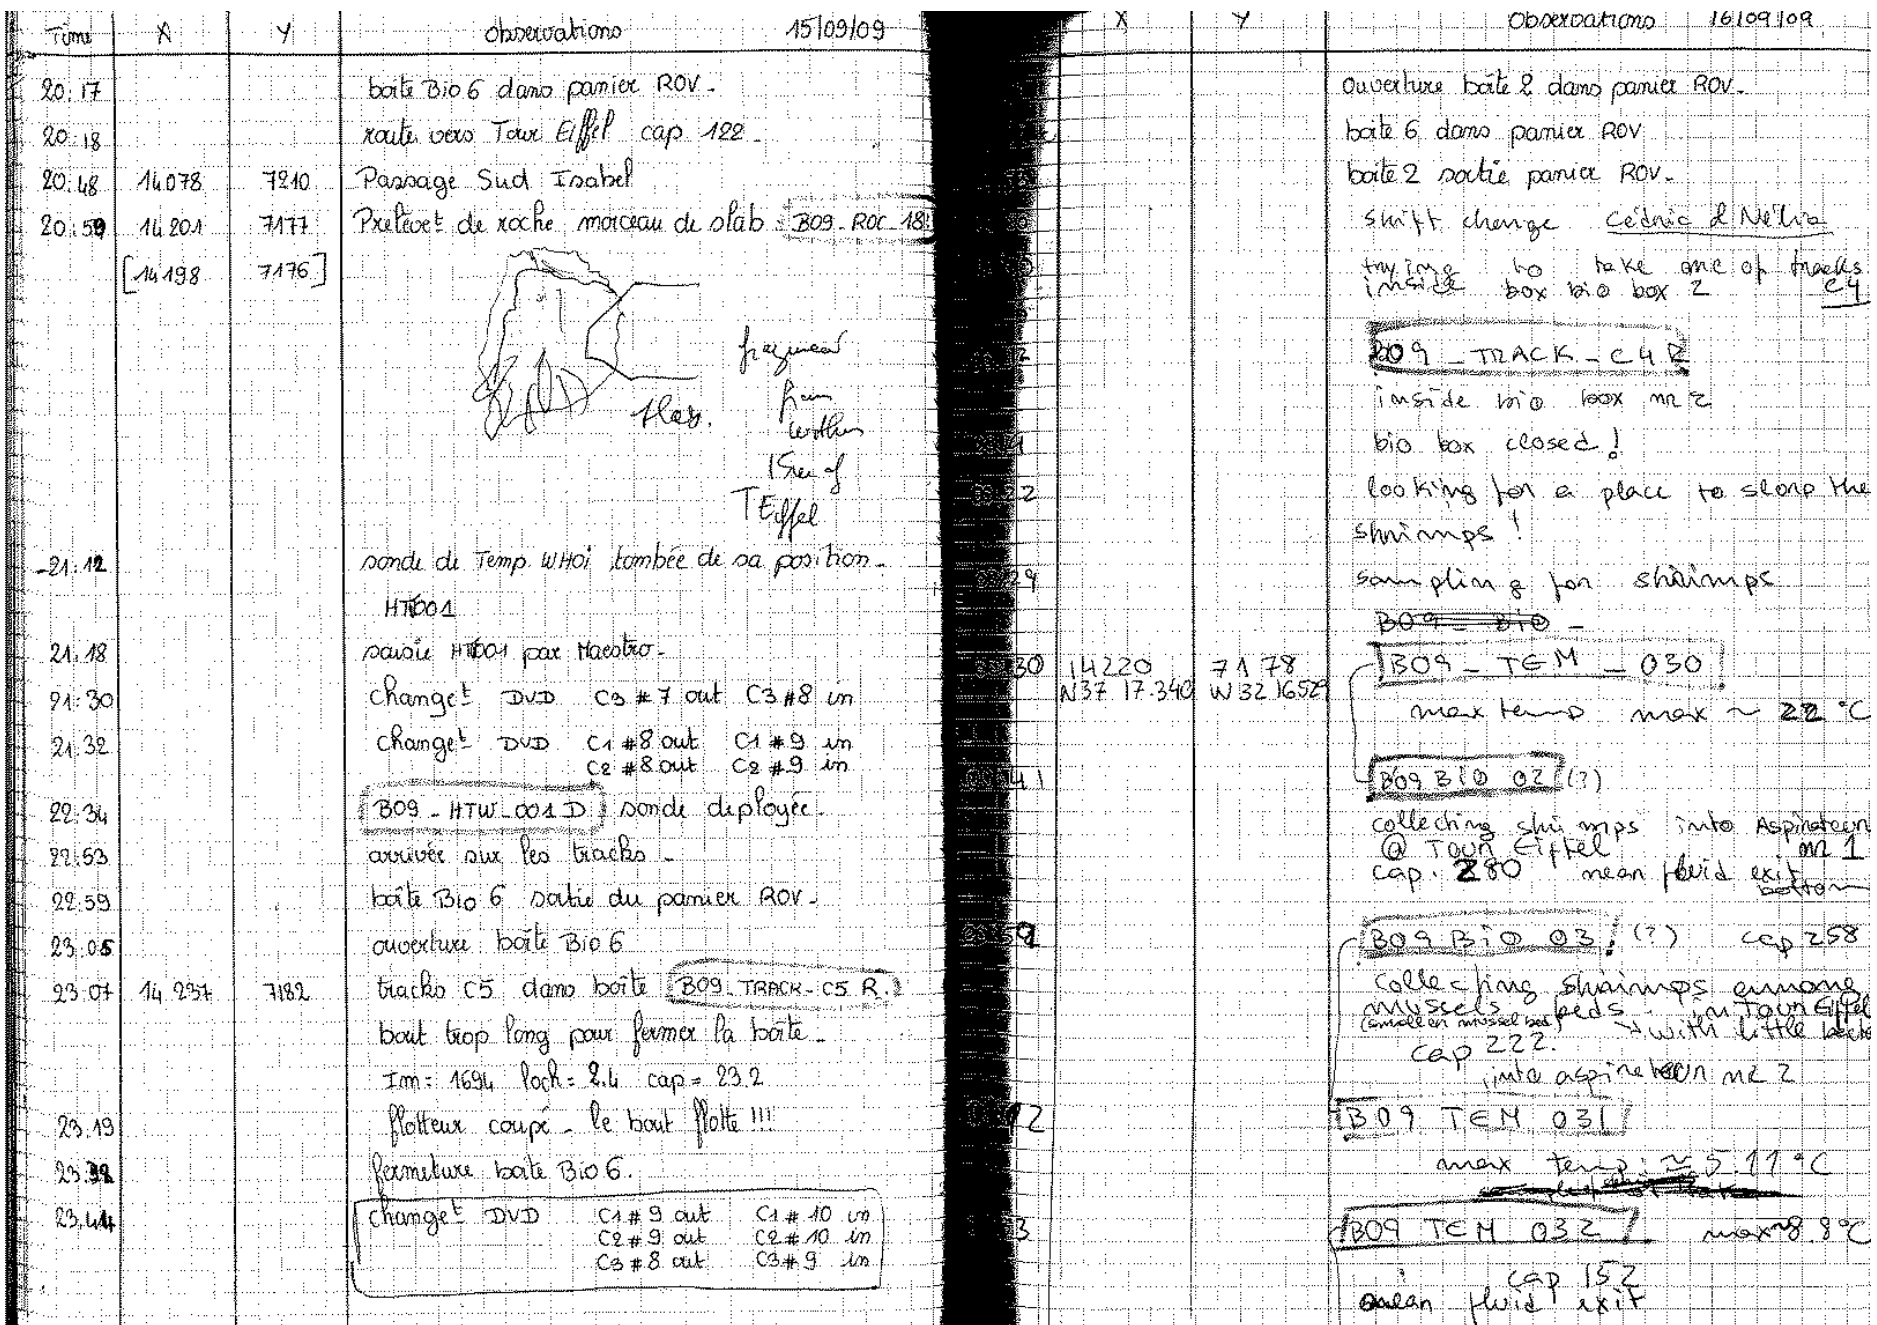 Time X Y Observations 15/09/09
20:17 boîte Bio 6 dans panier ROV.
20:18 route vers Tour Eiffel cap 122.
20:48 14078 7210 Passage Sud Isabel
20:59 14201 7177 Prélèvet de roche morceau de slab : B09_ROC_18
[14198 7176]
from
TEiffel
21:12 sonde de Temp. WHOi tombée de sa position.
HT001
21:18 saisie HT001 par Maestro.
21:30 changet DVD C3 #7 out C3 #8 in
21:32 changet DVD C1 #8 out C1 #9 in
C2 #8 out C2 #9 in
22:34 B09_HTW_001 D sonde deployée.
22:53 arrivée sur les tracks.
22:59 boîte Bio 6 sortie du panier ROV.
23:05 ouverture boîte Bio 6
23:07 14237 7182 tracks C5 dans boîte B09_TRACK-C5 R.
bout trop long pour fermer la boîte.
Im= 1694 loch= 2.4 cap= 23.2
23.19 flotteur coupé - le bout flotte !!!
fermeture boîte Bio 6.
23.44 changet DVD C1 #9 out C1 #10 in
C2 #9 out C2 #10 in
C3 #8 out C3 #9 in
X Y Observations 16/09/09
Ouverture boîte 2 dans panier ROV.
boîte 6 dans panier ROV
boîte 2 sortie panier ROV.
shift change Cédric &
trying to take one of tracks
inside box bio box 2 C4
B09_TRACK_C4 R
inside bio box nr 2
bio box closed!
looking for a place to slorp the
shrimps!
sampling for shrimps
B09_BIO_
30 14220 7178 B09_TEM_030
N37 17.340 W32 16529
max temp max ~ 22 °C
41 B09 BIO 02 (?)
collecting shrimps into Aspirateur
@ Tour Eiffel nr 1
cap. 280 near fluid exit
bottom
B09 BIO 03 (?) cap 258
collecting shrimps among
mussels beds - in Tour Eiffel
(smaller mussel bed) → with little
cap 222.
into aspirateur nr 2
12 B09 TEM 031
max temp: ≃ 5.11 °C
3 B09 TEM 032 max ~8.8°C
cap 152
fluid exit